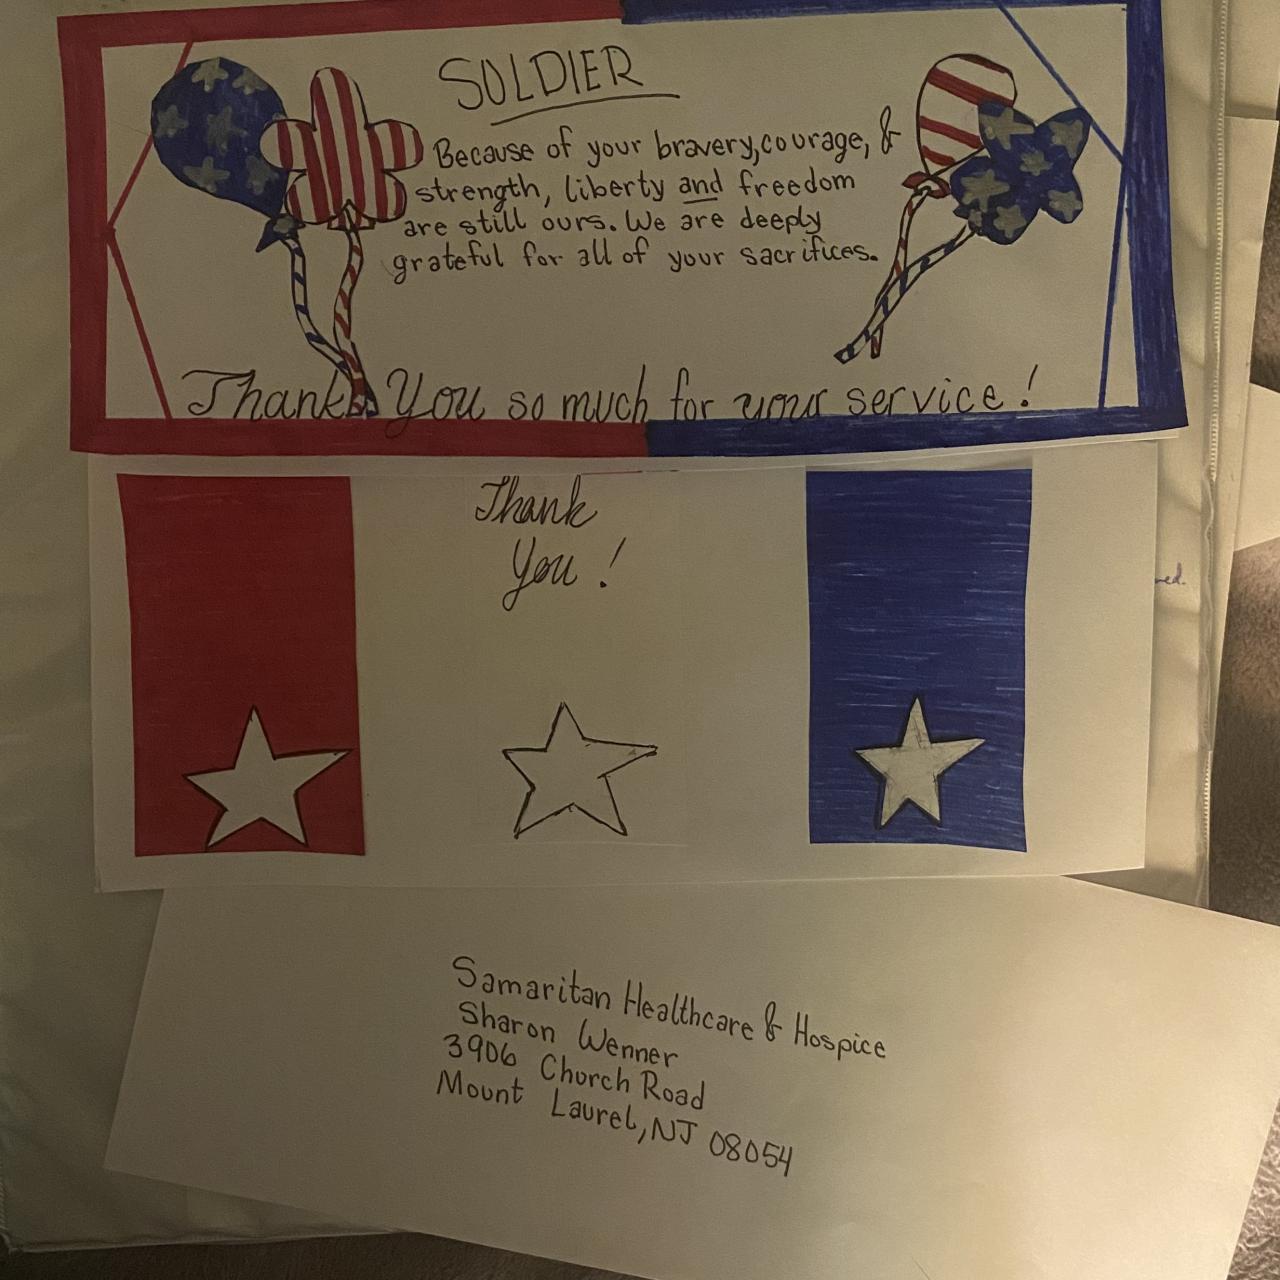 SOLDIER
Because of your bravery, courage, &
strength, liberty and freedom
are still ours. We are deeply
grateful for all of your sacrifices.
Thank You so much for your service!
Thank
You!
Samaritan Healthcare & Hospice
Sharon Wenner
3906 Church Road
Mount Laurel, NJ 08054